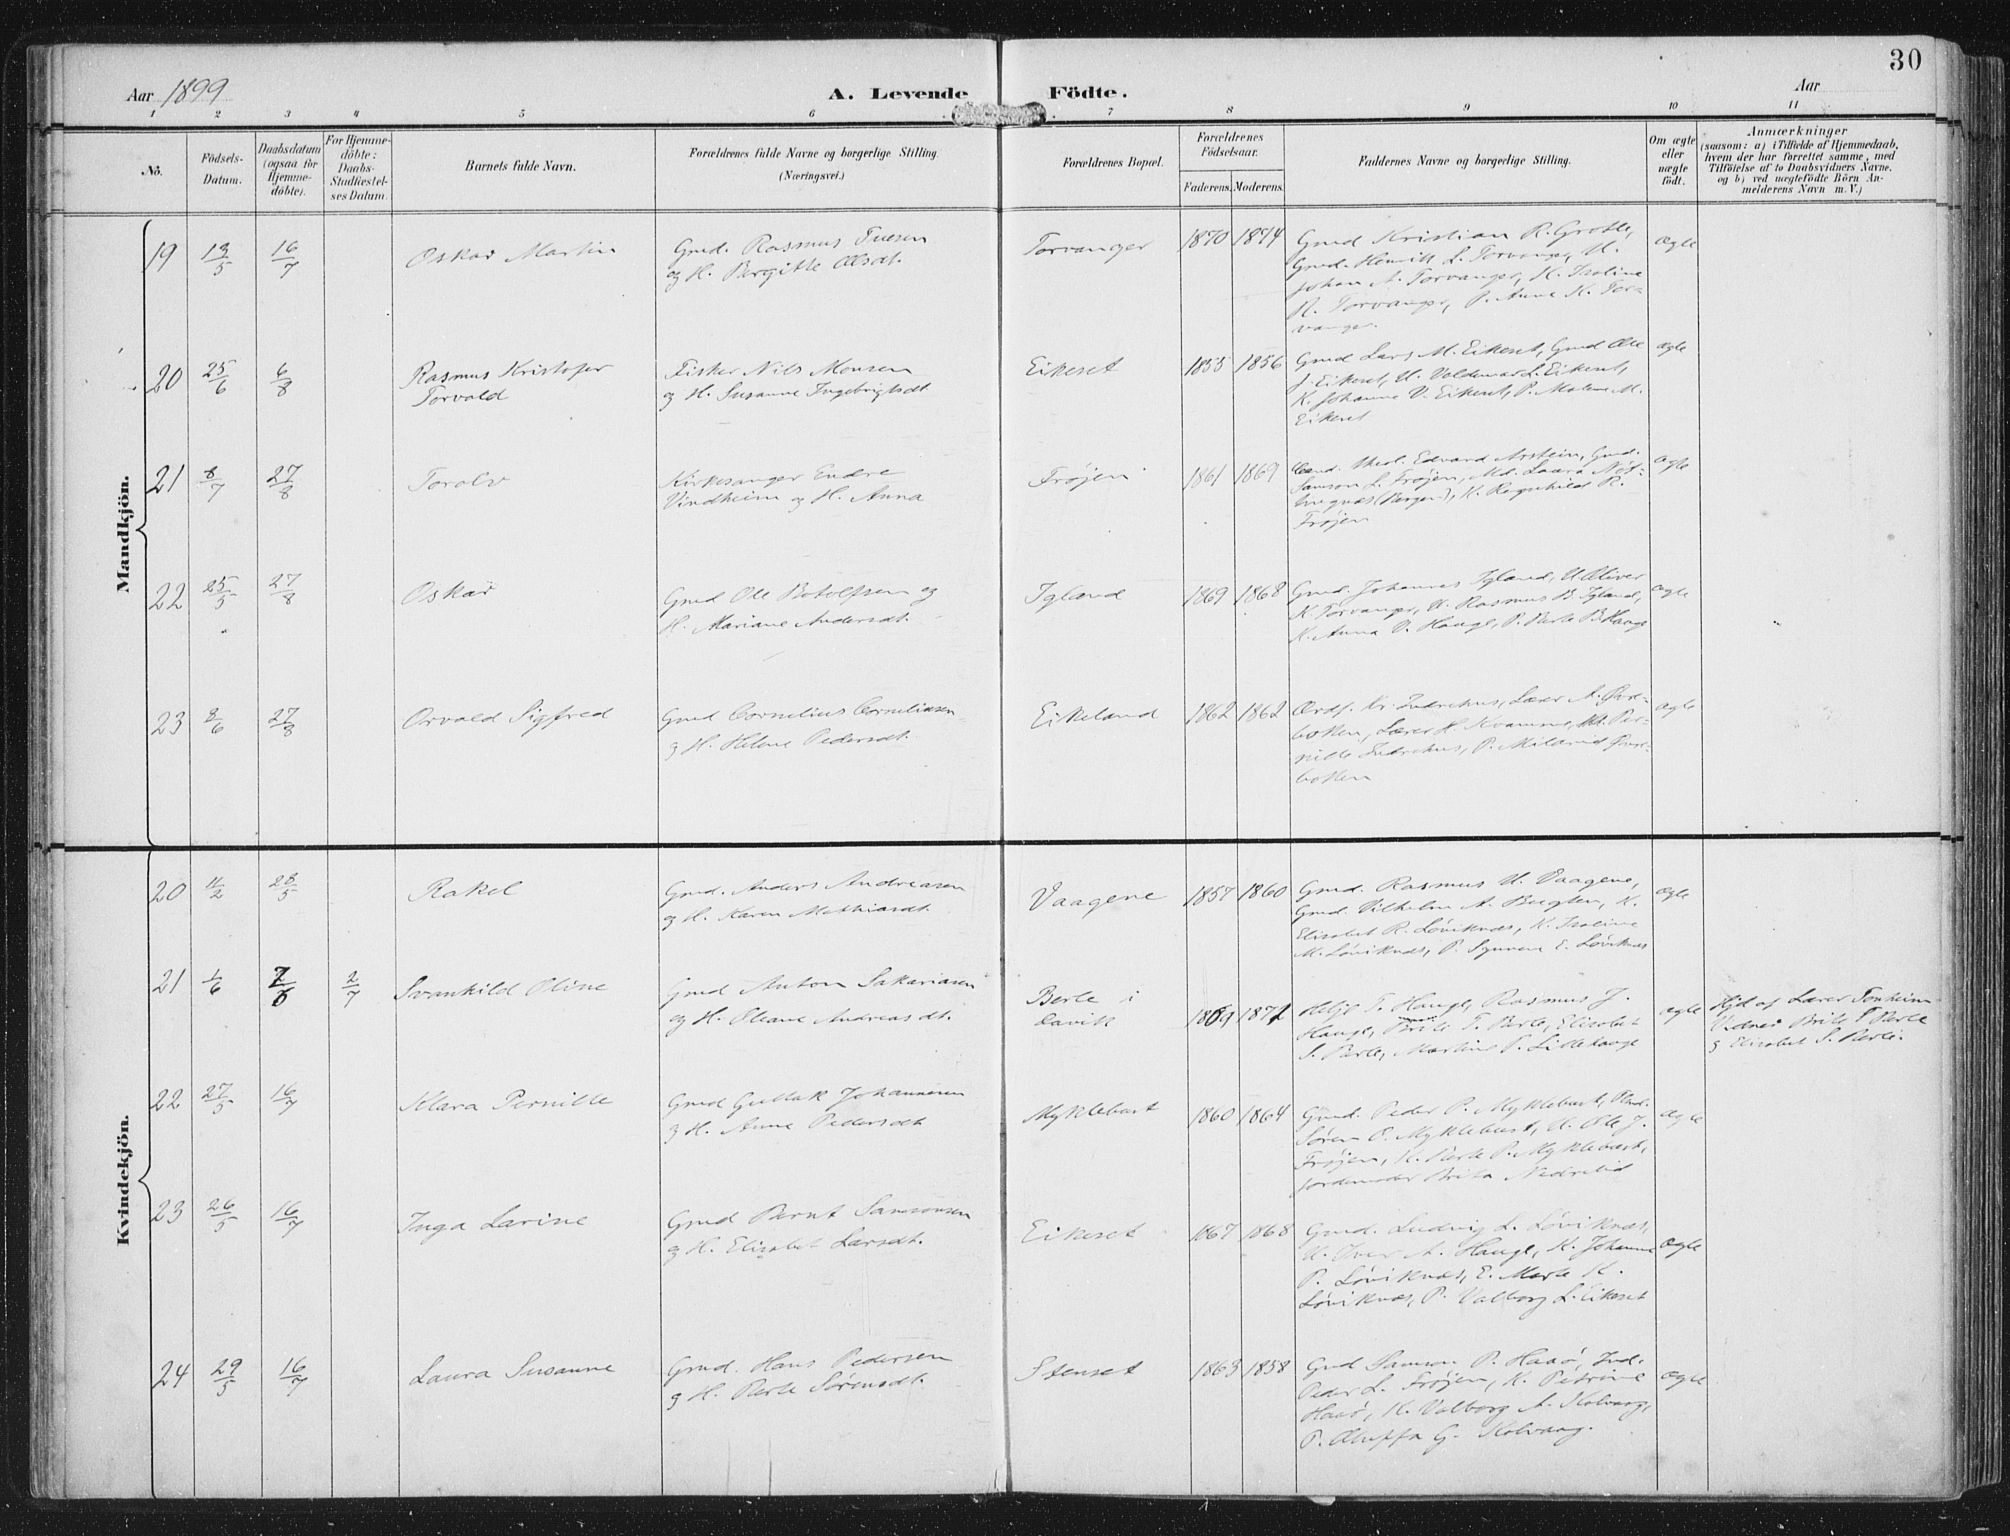 30
Aar 1899
A. Levende
Födte.
Aar
1 2 3 4 5 6 7 8 9 10 11
No.
Födsels-
Datum.
Daabsdatum
(ogsaa for
Hjemme-
döbte).
For Hjemme-
döbte:
Daabs-
Stadfæstel-
ses Datum.
Barnets fulde Navn.
Forældrenes fulde Navne og borgerlige Stilling.
(Næringsvei.)
Forældrenes Bopæl.
Forældrenes
Födselsaar.
Faderens. Moderens.
Faddernes Navne og borgerlige Stilling.
Om ægte
eller
uægte
födt.
Anmærkninger
(saasom: a) i Tilfælde af Hjemmedaab,
hvem der har forrettet samme, med
Tilföielse af to Daabsvidners Navne,
og b) ved uægtefödte Börn An-
melderens Navn m. V.)
Mandkjön.
19 13/5 16/7 Oskar Martin
Gmd. Rasmus Tuesen
og H. Bergitte Olsdt.
Torvanger 1870 1874
Gmd Kristian R. Grotle,
Gmd. Henrik L. Torvanger, U.
Johan A. Torvanger, K. Isoline
R. Torvanger, P. Anna K. Tor-
vanger.
ægte
20 25/6 6/8 Rasmus Kristofer
Torvald
Fisker Nils Monsen
og H. Susanne Ingebrigtsdt
Eikeset 1855 1856
Gmd Lars M. Eikeset, Gmd Ole
J. Eikeset, U. Valdemar L. Eikeset,
K. Johanne V. Eikeset, P. Malene M.
Eikeset
ægte
21 8/7 27/8 Toralv
Kirkesanger Endre
Vindheim og H. Anna
Frøjen 1861 1869
Cand. theol. Edvard Arstein, Gmd.
Samson L. Frøjen, Md. Laura
(Bergen), K. Ragnhild R.
Frøjen
ægte
22 25/5 27/8 Oskar
Gmd Ole Botolfsen og
H. Mariane Andersdt.
Igland 1869 1868
Gmd. Johannes Igland, U. Oliver
K. Torvanger, U. Rasmus B. Igland,
K. Anna V. Hauge, P. Berte B. Hauge
ægte
23 8/6 27/8 Orvald Sigfred
Gmd Cornelius Corneliusen
og H. Helene Pedersdt.
Eikeland 1862 1862
Ordf. Kr. Indrehus, Lærer A. Øvre-
botten, Lærer H. Kvamme, Md. Per-
nille Indrehus, P. Mildrid Øvre-
botten
ægte
Kvindekjön.
20 11/2 28/5 Rakel
Gmd. Anders Andreasen
og H. Karen Mathiasdt.
Vaagene 1857 1860
Gmd. Rasmus U. Vaagene,
Gmd. Vilhelm A. K.
Elisabet R. Løviknæs, K. Isoline
M. Løviknæs, P. Synneve E. Løviknæs
ægte
21 1/6 2/7 Svanhild Oline
Gmd Anton Sakariasen
og H. Oleane Andreasdt.
Berle i
Davik 1869 1871
Helje T. Hauge, Rasmus J.
Hauge, Brite T. Berle, Elisabet
S. Berle, Martine P. Lillehauge
ægte
Hjd af Lærer Tonheim
Vidner Brite T Berle
og Elisabet S. Berle.
22 27/5 16/7 Klara Pernille
Gmd Gullak Johannesen
og H. Anne Pedersdt
Myklebust 1860 1864
Gmd. Peder P. Myklebust,
Søren P. Myklebust, U. Ole J.
Frøjen, K. Berte P. Myklebust,
Jordemoder Brita Nedrelid
ægte
23 26/5 16/7 Inga Larine
Gmd Bernt Samsonsen
og H. Elisabet Larsdt.
Eikeset 1867 1868
Gmd. Ludvig L. Løviknæs,
U. Iver A. Hauge, K. Johanne
P. Løviknæs, E. Marte K.
Løviknæs, P. Valborg L. Eikeset
ægte
24 29/5 16/7 Laura Susanne
Gmd. Hans Pedersen
og H. Berte Sørensdt.
Stenset 1863 1858
Gmd Samson P. Hauø, Ind.
Peder L. Frøjen, K. Petrine
Hauø, K. Valborg A. Kolvaag,
P. G. Kolvaag.
ægte